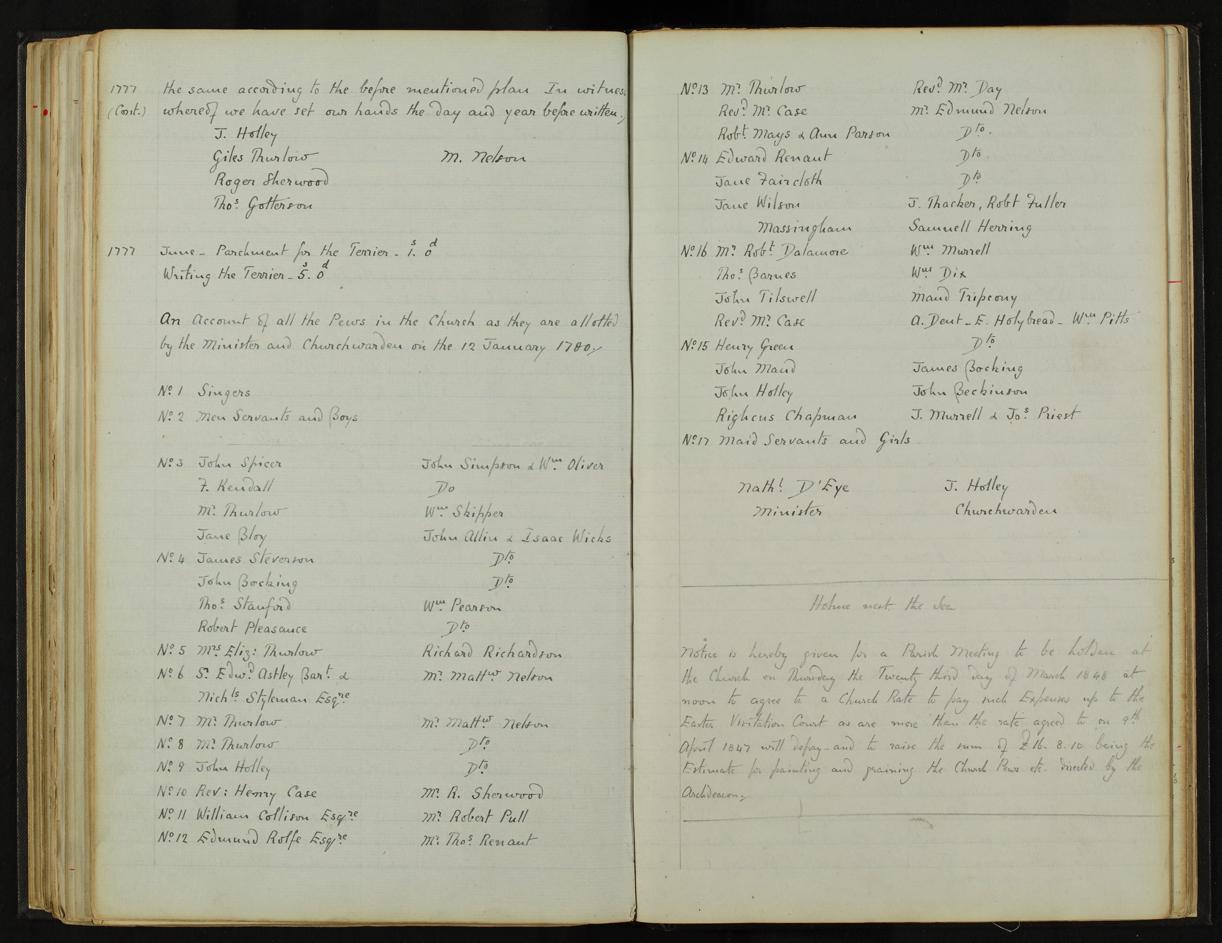 1777 the same according to the before mentioned plan In witness
(Cont.) whereof we have set our hands the day and year before written,
J. Holley
Giles Thurlow M. Nelson
Roger Sherwood
Thos. Gotterson
1777 June - Parchment for the Terrier - 1s. 0d
Writing the Terrier - 5s. 0d
An Account of all the Pews in the Church as they are allotted
by the Minister and Churchwarden on the 12 January 1780,
No. 1 Singers
No. 2 Men Servants and Boys
No. 3 John Spicer John Simpson & Wm Oliver
F. Kendall Do
Mr. Thurlow Wm Skipper
Jane Bloy John Allin & Isaac Wicks
No. 4 James Steverson Dto
John Bocking Dto
Thos. Stanford Wm Pearson
Robert Pleasance Dto
No. 5 Mrs. Eliz: Thurlow Richard Richardson
No. 6 Sr. Edwd. Astley Bart. & Mr. Mattw Nelson
Nichls Styleman Esqre
No. 7 Mr. Thurlow Mr. Mattw Nelson
No. 8 Mr. Thurlow Dto
No. 9 John Holley Dto
No. 10 Rev: Henry Case Mr. R. Sherwood
No. 11 William Collison Esqre Mr. Robert Pull
No. 12 Edmund Rolfe Esqre Mr. Thos. Renaut
No. 13 Mr. Thurlow Revd. Mr. Day
Revd. Mr. Case Mr. Edmund Nelson
Robt. Mays & Ann Parson Dto.
No. 14 Edward Renaut Dto.
Jane Faircloth Dto
Jane Wilson J. Thacker, Robt Fuller
Massingham Samuell Herring
No. 16 Mr. Robt. Dalamore Wm Murrell
Thos. Barnes Wm Dix
John Tilswell Maud Tripcony
Revd. Mr. Case A. Dent - E. Holybread - Wm Pitts
No. 15 Henry Green Dto
John Maud James Bocking
John Holley John Beckinson
Righeus Chapman J. Murrell & Jos. Priest
No. 17 Maid Servants and Girls
Nathl. D'Eye J. Holley
Minister Churchwarden
Holme next the Sea
Notice is hereby given for a Parish Meeting to be holden at
the Church on Thursday the Twenty third day of March 1848 at
noon to agree to a Church Rate to pay such Expenses up to the
Easter Visitation Court as are more than the rate agreed to on 9th
April 1847 will defray - and to raise the sum of £16. 8. 10 being the
Estimate for painting and graining the Church Pews etc. directed by the
Archdeacon,